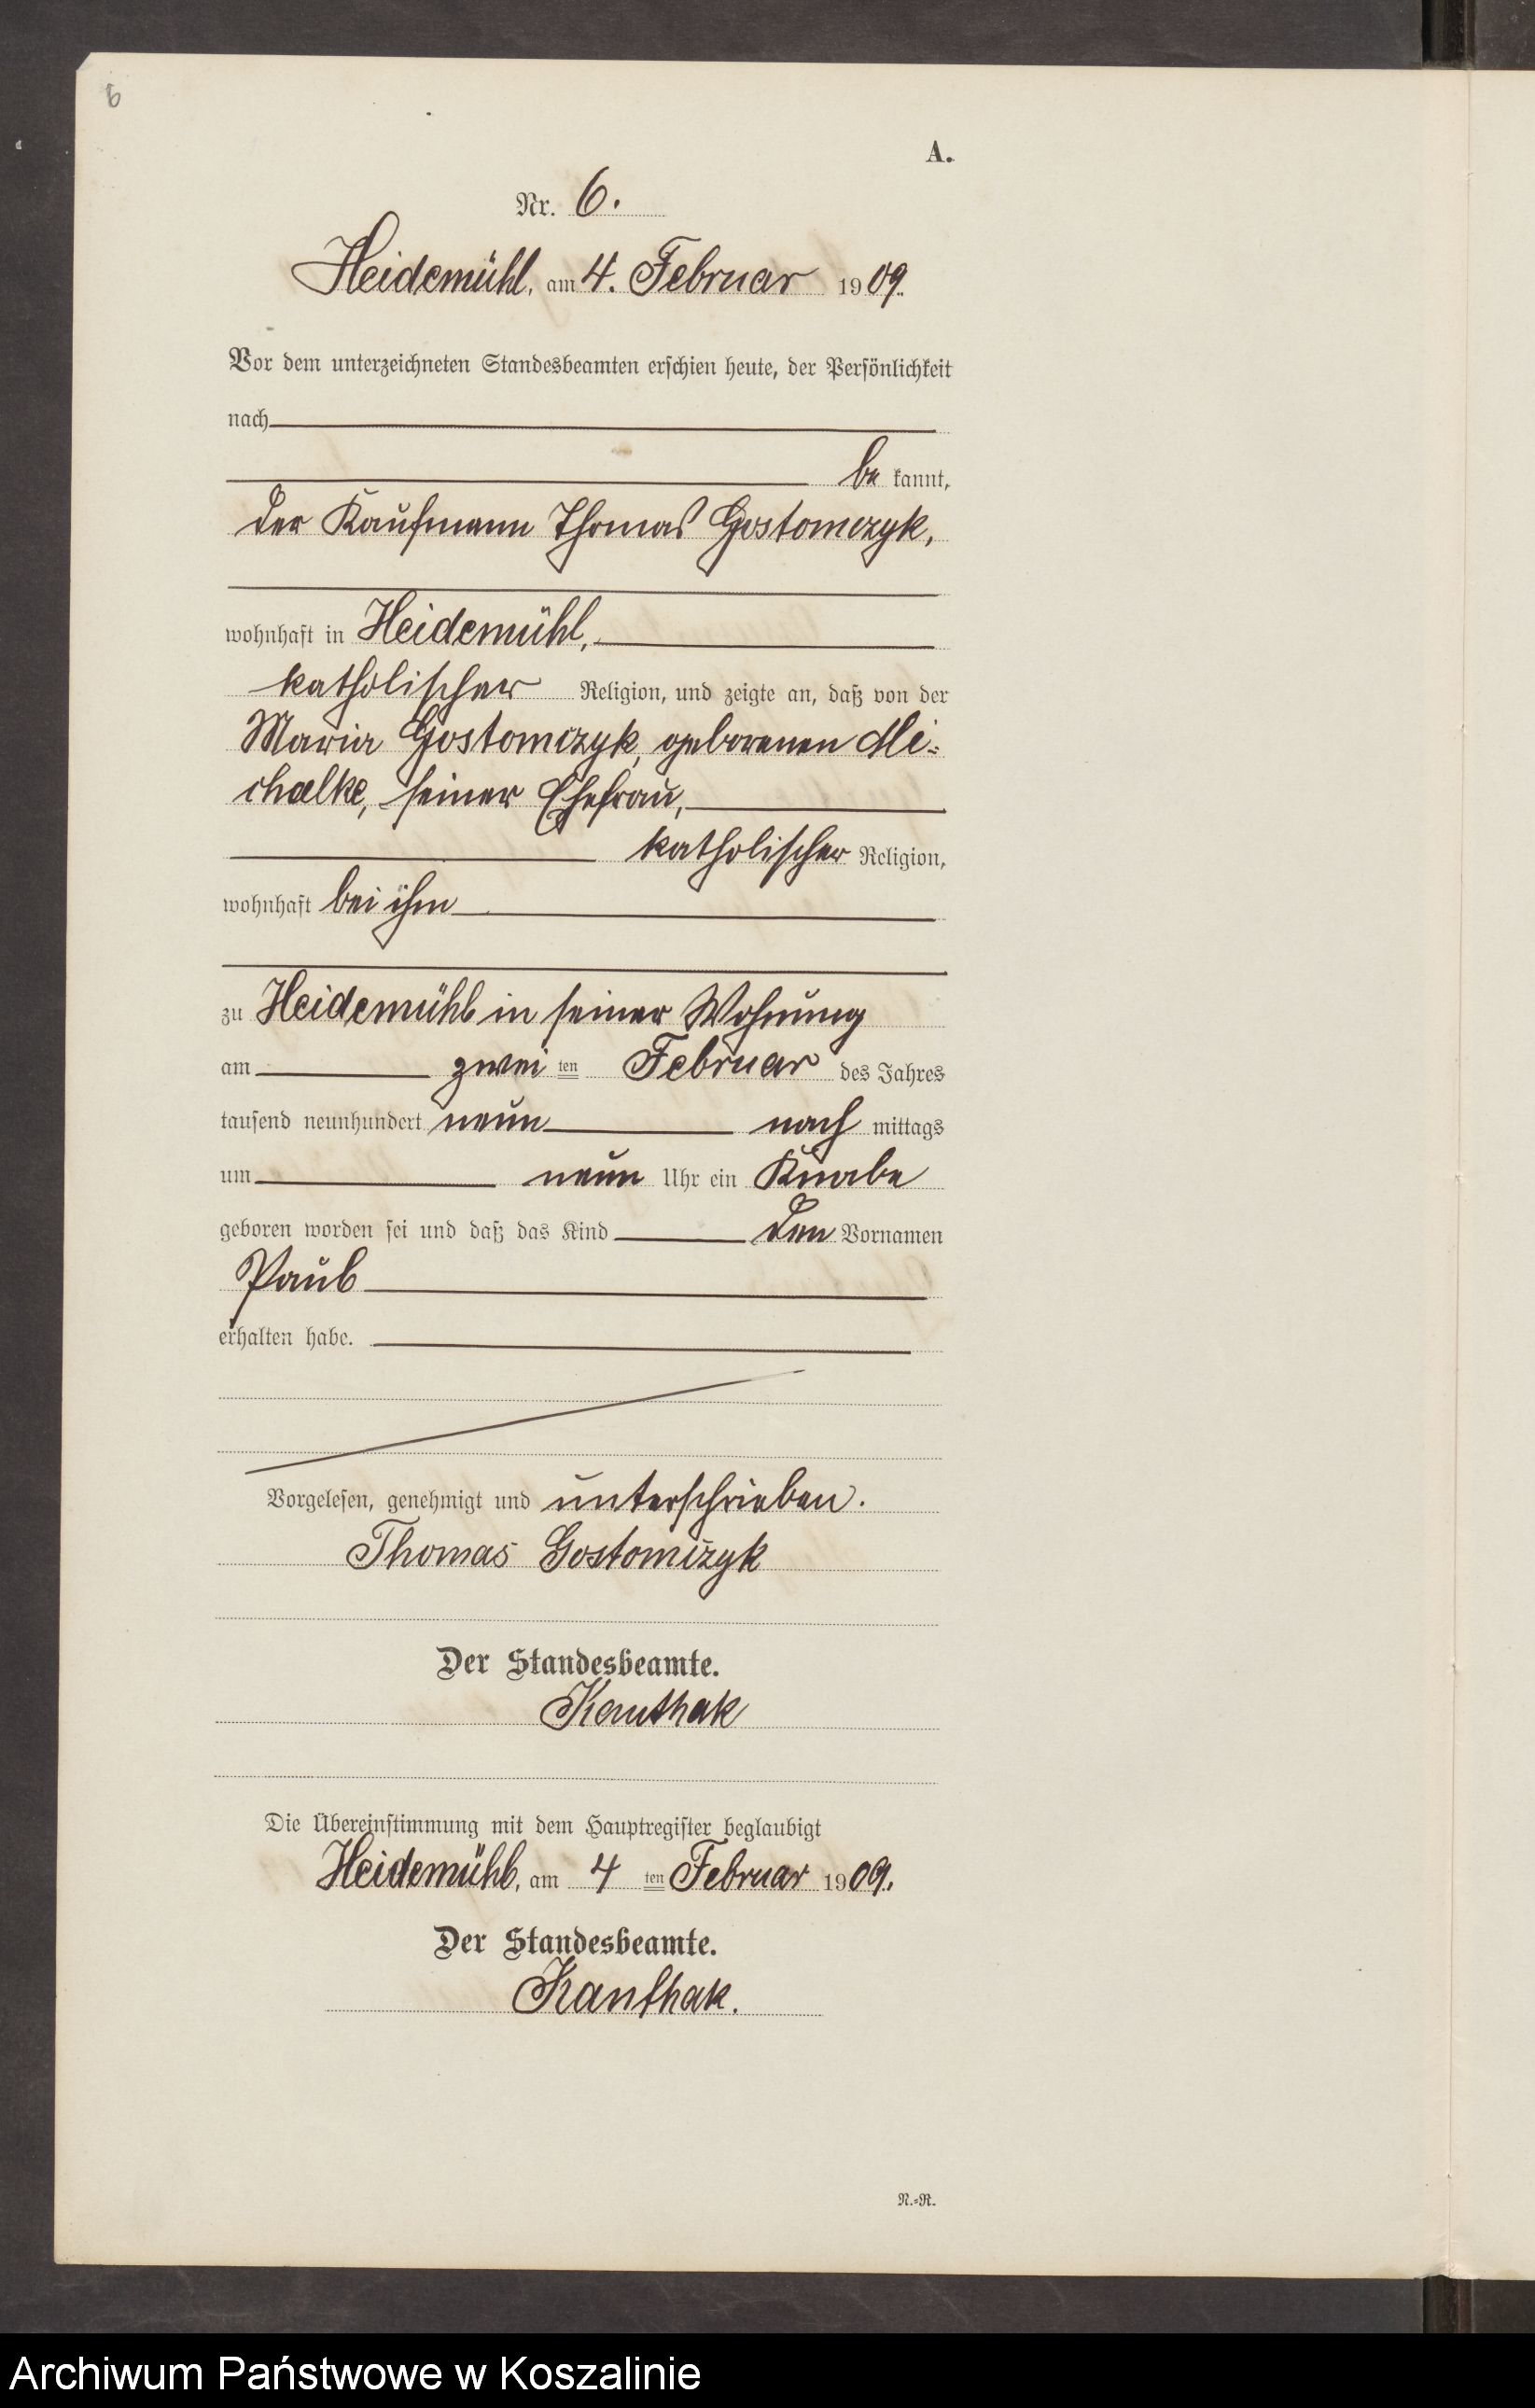 6
A.
Nr. 6.
Heidemühl, am 4. Februar 1909.
Vor dem unterzeichneten Standesbeamten erschien heute, der Persönlichkeit
nach
be kannt,
der Kaufmann Thomas Gostomczyk,
wohnhaft in Heidemühl,
katholischer Religion, und zeigte an, daß von der
Maria Gostomczyk, geborenen Mi=
chalke, seiner Ehefrau,
katholischer Religion,
wohnhaft bei ihm
zu Heidemühl in seiner Wohnung
am zwei ten Februar des Jahres
tausend neunhundert neun nach mittags
um neun Uhr ein Knabe
geboren worden sei und daß das Kind den Vornamen
Paul
erhalten habe.
Vorgelesen, genehmigt und unterschrieben.
Thomas Gostomczyk
Der Standesbeamte.
Kanthak
Die Übereinstimmung mit dem Hauptregister beglaubigt
Heidemühl, am 4 ten Februar 1909.
Der Standesbeamte.
Kanthak.
N.=R.
Archiwum Państwowe w Koszalinie